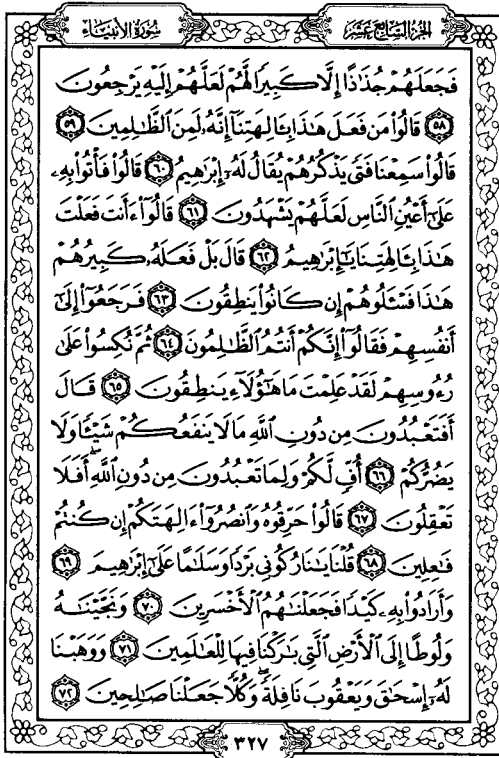 الجزء السابع عشر
سورة الأنبياء
فَجَعَلَهُمْ جُذَاذًا إِلَّا كَبِيرًا لَّهُمْ لَعَلَّهُمْ إِلَيْهِ يَرْجِعُونَ
٥٨ قَالُوا۟ مَن فَعَلَ هَٰذَا بِـَٔالِهَتِنَآ إِنَّهُۥ لَمِنَ ٱلظَّٰلِمِينَ ٥٩
قَالُوا۟ سَمِعْنَا فَتًى يَذْكُرُهُمْ يُقَالُ لَهُۥٓ إِبْرَٰهِيمُ ٦٠ قَالُوا۟ فَأْتُوا۟ بِهِۦ
عَلَىٰٓ أَعْيُنِ ٱلنَّاسِ لَعَلَّهُمْ يَشْهَدُونَ ٦١ قَالُوٓا۟ ءَأَنتَ فَعَلْتَ
هَٰذَا بِـَٔالِهَتِنَا يَٰٓإِبْرَٰهِيمُ ٦٢ قَالَ بَلْ فَعَلَهُۥ كَبِيرُهُمْ
هَٰذَا فَسْـَٔلُوهُمْ إِن كَانُوا۟ يَنطِقُونَ ٦٣ فَرَجَعُوٓا۟ إِلَىٰٓ
أَنفُسِهِمْ فَقَالُوٓا۟ إِنَّكُمْ أَنتُمُ ٱلظَّٰلِمُونَ ٦٤ ثُمَّ نُكِسُوا۟ عَلَىٰ
رُءُوسِهِمْ لَقَدْ عَلِمْتَ مَا هَٰٓؤُلَآءِ يَنطِقُونَ ٦٥ قَالَ
أَفَتَعْبُدُونَ مِن دُونِ ٱللَّهِ مَا لَا يَنفَعُكُمْ شَيْـًٔا وَلَا
يَضُرُّكُمْ ٦٦ أُفٍّ لَّكُمْ وَلِمَا تَعْبُدُونَ مِن دُونِ ٱللَّهِ ۖ أَفَلَا
تَعْقِلُونَ ٦٧ قَالُوا۟ حَرِّقُوهُ وَٱنصُرُوٓا۟ ءَالِهَتَكُمْ إِن كُنتُمْ
فَٰعِلِينَ ٦٨ قُلْنَا يَٰنَارُ كُونِى بَرْدًا وَسَلَٰمًا عَلَىٰٓ إِبْرَٰهِيمَ ٦٩
وَأَرَادُوا۟ بِهِۦ كَيْدًا فَجَعَلْنَٰهُمُ ٱلْأَخْسَرِينَ ٧٠ وَنَجَّيْنَٰهُ
وَلُوطًا إِلَى ٱلْأَرْضِ ٱلَّتِى بَٰرَكْنَا فِيهَا لِلْعَٰلَمِينَ ٧١ وَوَهَبْنَا
لَهُۥٓ إِسْحَٰقَ وَيَعْقُوبَ نَافِلَةً ۖ وَكُلًّا جَعَلْنَا صَٰلِحِينَ ٧٢
٣٢٧